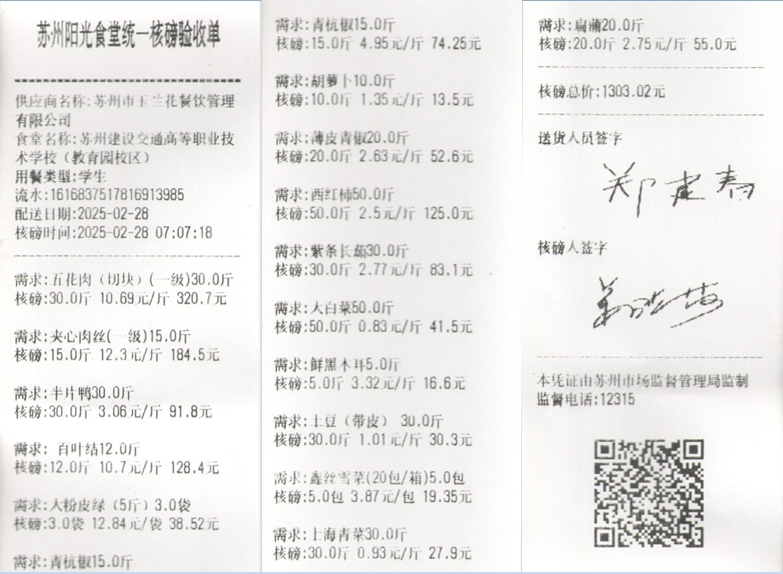 苏州阳光食堂统一核磅验收单
供应商名称:苏州市玉兰花餐饮管理
有限公司
食堂名称:苏州建设交通高等职业技
术学校（教育园校区）
用餐类型:学生
流水:1616837517816913985
配送日期:2025-02-28
核磅时间:2025-02-28 07:07:18
需求:五花肉（切块）(一级)30.0斤
核磅:30.0斤 10.69元/斤 320.7元
需求:夹心肉丝(一级)15.0斤
核磅:15.0斤 12.3元/斤 184.5元
需求:半片鸭30.0斤
核磅:30.0斤 3.06元/斤 91.8元
需求: 百叶结12.0斤
核磅:12.0斤 10.7元/斤 128.4元
需求:大粉皮绿（5斤）3.0袋
核磅:3.0袋 12.84元/袋 38.52元
需求:青杭椒15.0斤
需求:青杭椒15.0斤
核磅:15.0斤 4.95元/斤 74.25元
需求:胡萝卜10.0斤
核磅:10.0斤 1.35元/斤 13.5元
需求:薄皮青椒20.0斤
核磅:20.0斤 2.63元/斤 52.6元
需求:西红柿50.0斤
核磅:50.0斤 2.5元/斤 125.0元
需求:紫条长茄30.0斤
核磅:30.0斤 2.77元/斤 83.1元
需求:大白菜50.0斤
核磅:50.0斤 0.83元/斤 41.5元
需求:鲜黑木耳5.0斤
核磅:5.0斤 3.32元/斤 16.6元
需求:土豆（带皮） 30.0斤
核磅:30.0斤 1.01元/斤 30.3元
需求:鑫丝雪菜(20包/箱)5.0包
核磅:5.0包 3.87元/包 19.35元
需求:上海青菜30.0斤
核磅:30.0斤 0.93元/斤 27.9元
需求:扁蒲20.0斤
核磅:20.0斤 2.75元/斤 55.0元
核磅总价:1303.02元
送货人员签字
郑建春
核磅人签字
本凭证由苏州市场监督管理局监制
监督电话:12315